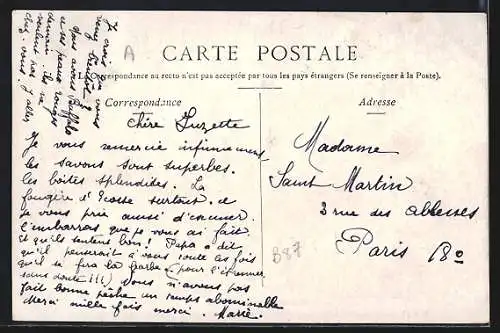 CARTE POSTALE
La Correspondance au recto n'est pas acceptée par tous les pays étrangers (Se renseigner à la Poste).
Correspondance
Adresse
A
chère Suzette
Je vous remercie infiniment
les savons sont superbes.
les boîtes splendides. La
fougère d'Ecosse surtout. et
je vous prie aussi d'excuser
l'embarras que je vous ai fait
et qu'ils sentent bon! Papa a dit
qu'il penserait à vous toute les fois
qu'il se fera la barbe (pour l'étrenner
sans doute!!!) Nous n'avons pas
fait bonne pêche un temps abominable
Merci mille fois merci. Marie.
Je crois que vous
avez
Nous avons Buffalo
et ses peaux rouges
demain. ils ne
sentent pas
chez vous. J'allais
Madame
Saint Martin
3 rue des abbesses
Paris 18e
B87